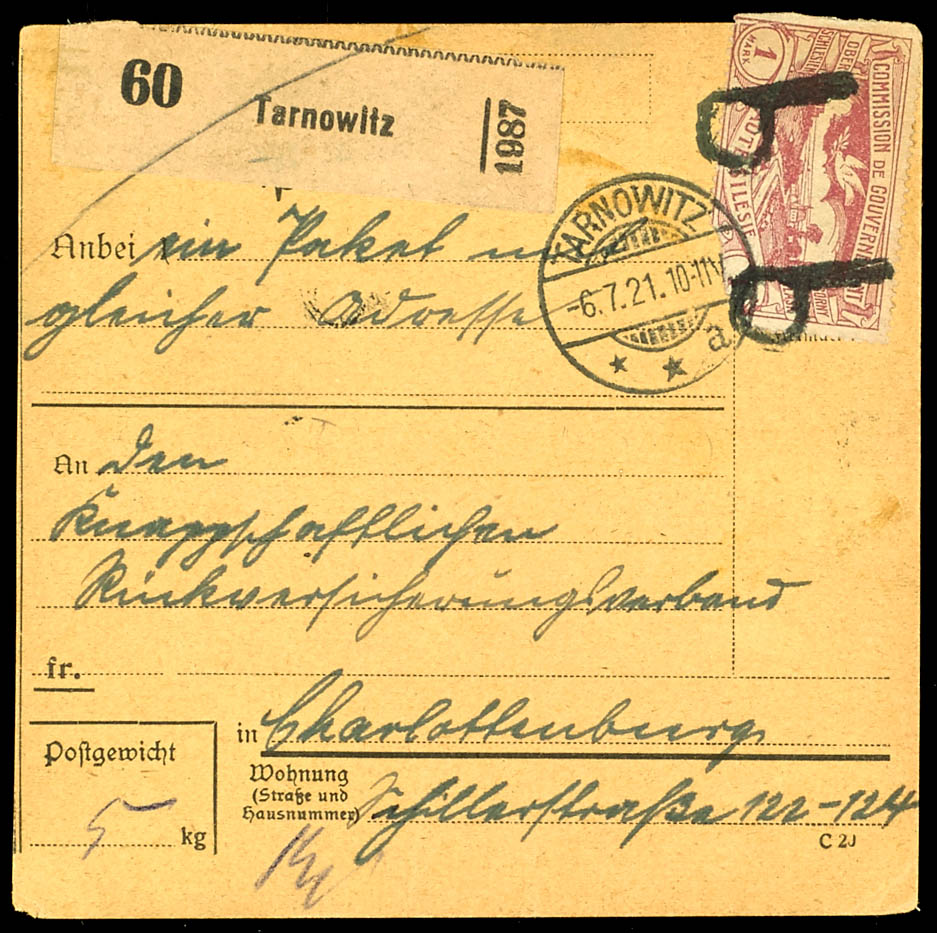 60 Tarnowitz 1987
1 MARK
OBER
SCHLESIEN
COMMISSION DE GOUVERNEMENT
HAUTE SILESIE
GÓRNY
ŚLĄSK
TARNOWITZ
-6.7.21.10-11V
* * a
Anbei ein Paket
gleicher Adresse
An den
Knappschaftlichen
Rückversicherungsverband
fr.
in Charlottenburg
Postgewicht
5 kg
Wohnung
(Straße und
Hausnummer) Schillerstraße 122-124
C 20